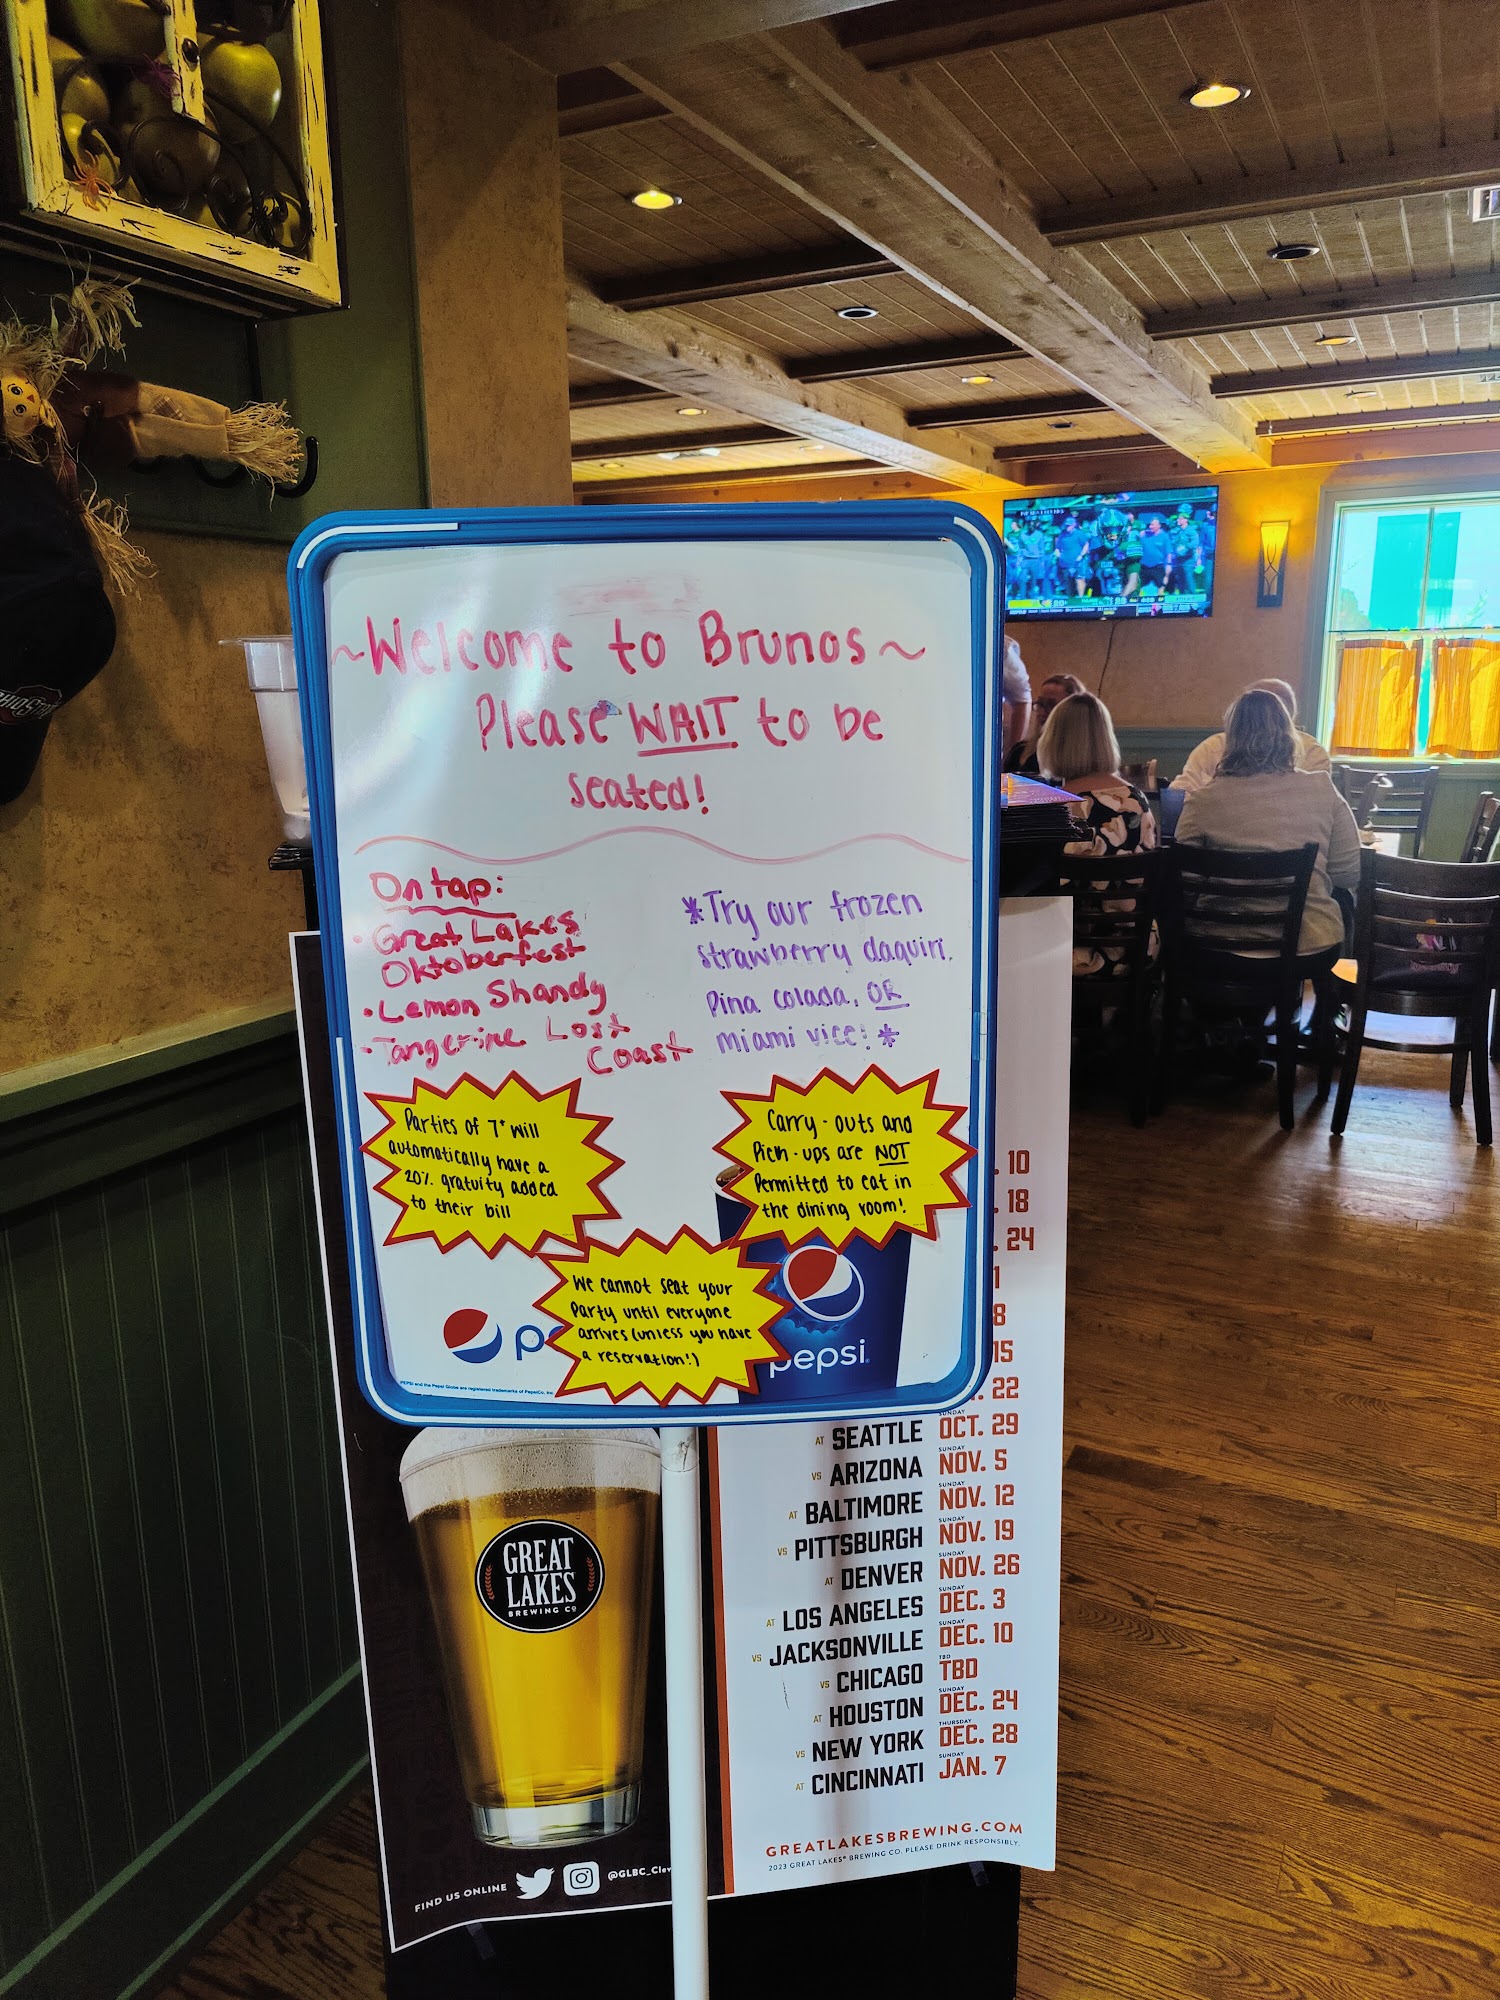 ~Welcome to Brunos~
Please WAIT to be
seated!
On tap:
• Great Lakes
Oktoberfest
• Lemon Shandy
• Tangerine Lost
Coast
*Try our frozen
strawberry daquiri,
Pina colada, OR
miami vice! *
Parties of 7+ will
automatically have a
20% gratuity added
to their bill
Carry-outs and
Pick-ups are NOT
Permitted to eat in
the dining room!
We cannot seat your
Party until everyone
arrives (unless you have
a reservation!)
pepsi
PEPSI and the Pepsi Globe are registered trademarks of PepsiCo, Inc.
. 10
. 18
. 24
1
8
15
. 22
AT SEATTLE SUNDAY OCT. 29
VS ARIZONA SUNDAY NOV. 5
AT BALTIMORE SUNDAY NOV. 12
VS PITTSBURGH SUNDAY NOV. 19
AT DENVER SUNDAY NOV. 26
AT LOS ANGELES SUNDAY DEC. 3
VS JACKSONVILLE SUNDAY DEC. 10
VS CHICAGO TBD TBD
AT HOUSTON SUNDAY DEC. 24
VS NEW YORK THURSDAY DEC. 28
AT CINCINNATI SUNDAY JAN. 7
GREATLAKESBREWING.COM
2023 GREAT LAKES® BREWING CO. PLEASE DRINK RESPONSIBLY.
GREAT
LAKES
BREWING CO
FIND US ONLINE
@GLBC_Clev